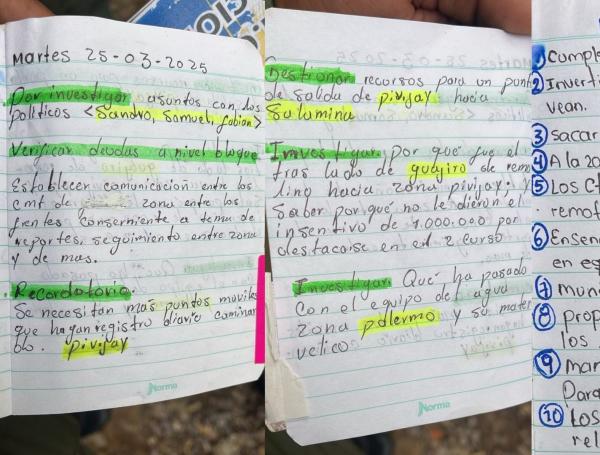 Martes 25-03-2025
Dar investigar asuntos con los
políticos <Sandro, Samuel, Fabian>
Verificar deudas a nivel bloque
Establecer comunicacion entre los
cmt de zona entre los
frentes conserniente a tema de
reportes, seguimiento entre zona
y de mas.
Recordatorio.
Se necesitan mas puntos moviles
que hagan registro diario caminan
do. pivijay
Norma
Gestionar recursos para un punt
de salida de pivijay hacia
Salamina
Investigar por qué fue el
tras lado de guajiro de remo
lino hacia zona pivijay; y
saber por qué no le dieron el
insentivo de 1.000.000 por
destacarse en el 2 curso
Investigar Que ha pasado
Con el equipo de agua
zona palermo y su mater
Norma
① Cumple
② Inverti
vean.
③ Sacar
④ A la 20
⑤ Los C
remot
⑥ Ensen
en es
⑦ mun
⑧ prop
los
⑨ mar
Dara
⑩ Los
rel